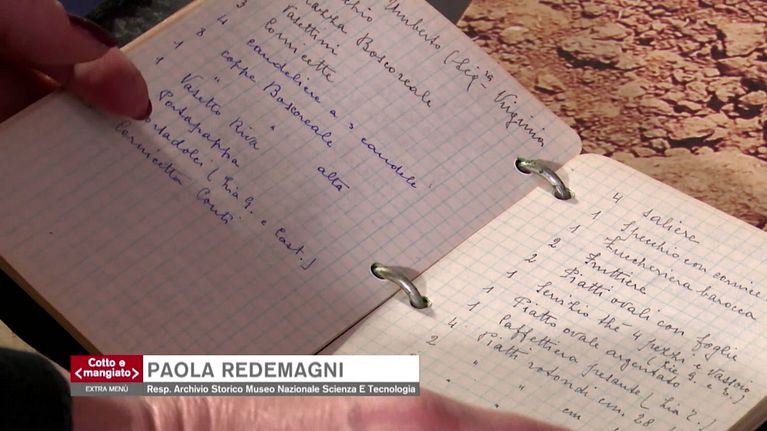 Umberto (Sig.ra Virginia
Boscoreale
3 Vasettini
4 Cornicette
8 candeliere a 3 candele
1 coppe Boscoreale
1 " " alta
Vasetto Riva
Portapappa
Portadolci (Zia G. e Cast.)
Cornicetta Conti
4 saliere
1 Specchio con cornice
1 Zuccheriera barocca
2 Fruttiere
2 Piatti ovali con foglie
1 Servizio thè 4 pezzi e vassoio
1 Piatto ovale argentato (Zie G. e S.)
4 Caffettiera grande (Zia L.)
2 Piatti rotondi cm. 28
" " cm
Cotto e
‹mangiato›
EXTRA MENÙ
PAOLA REDEMAGNI
Resp. Archivio Storico Museo Nazionale Scienza E Tecnologia